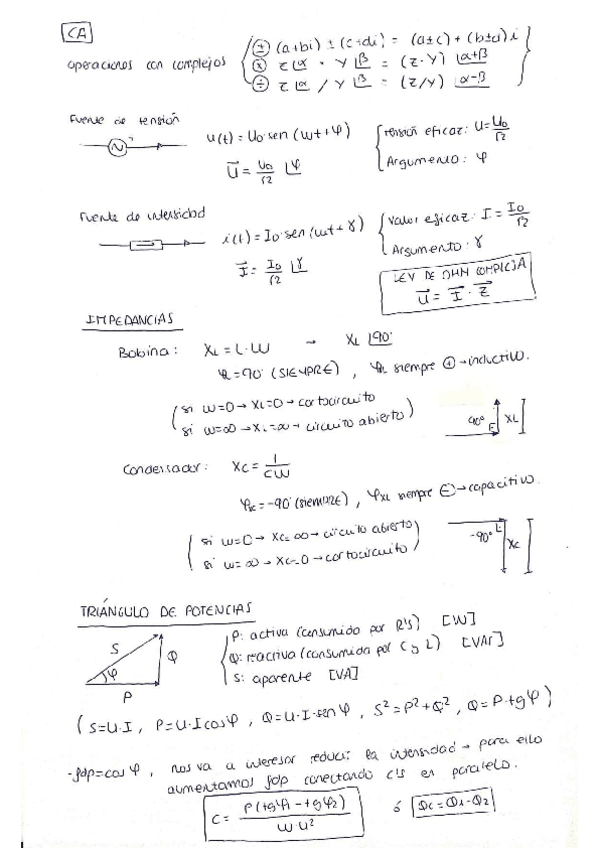 CA
operaciones con complejos
⊕ (a+bi) ± (c+di) = (a±c) + (b±d) i
⊗ z∠α · y∠β = (z·y) ∠α+β
÷ z∠α / y∠β = (z/y) ∠α-β
Fuente de tensión
u(t) = U₀·sen(ωt+φ)
U⃗ = U₀/√2 ∠φ
tensión eficaz: U = U₀/√2
Argumento: φ
Fuente de intensidad
i(t) = I₀·sen(ωt+γ)
I⃗ = I₀/√2 ∠γ
Valor eficaz: I = I₀/√2
Argumento: γ
LEY DE OHM COMPLEJA
U⃗ = I⃗ · Z⃗
IMPEDANCIAS
Bobina: XL = L·ω → XL ∠90°
φL = 90° (SIEMPRE), φL siempre ⊕ → inductivo.
si ω=0 → XL=0 → cortocircuito
si ω=∞ → XL=∞ → circuito abierto
90° XL
Condensador: XC = 1/Cω
φC = -90° (siempre), φXL siempre ⊖ → capacitivo.
si ω=0 → XC=∞ → circuito abierto
si ω=∞ → XC=0 → cortocircuito
-90° XC
TRIÁNGULO DE POTENCIAS
S Q φ P
P: activa (consumido por R's) [W]
Q: reactiva (consumida por C y L) [VAr]
S: aparente [VA]
(S=U·I, P=U·I cosφ, Q=U·I·senφ, S²=P²+Q², Q=P·tgφ)
-fdp=cosφ, nos va a interesar reducir la intensidad → para ello
aumentamos fdp conectando C's en paralelo.
C = P(tgφ₁ - tgφ₂) / ωU² ó QC=Q₁-Q₂